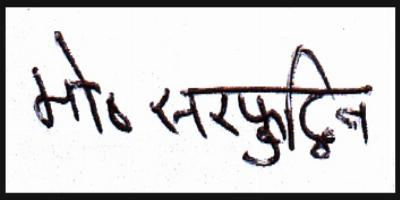 मो० सरफुद्दिन